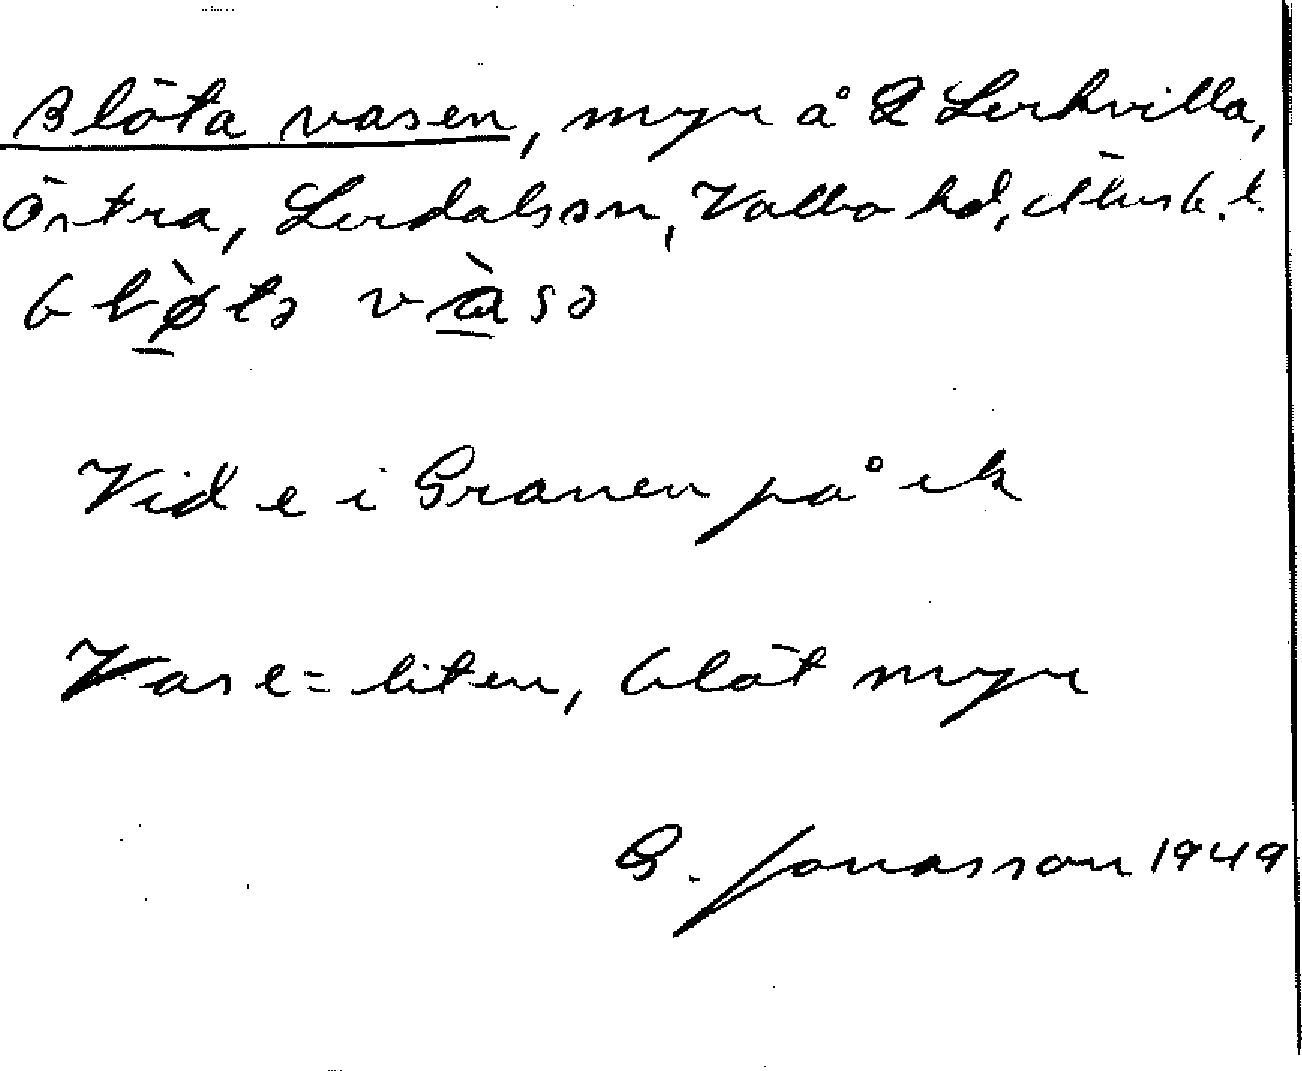 Blöta vasen, myr å 2 Lerkvilla,
Östra, Lerdals sn, Valbo hd, Älvsb. l.
bl̀ø̱tə và̱sə
Vid e i Granen på ek
Vase = liten, blöt myr
G. Jonasson 1949